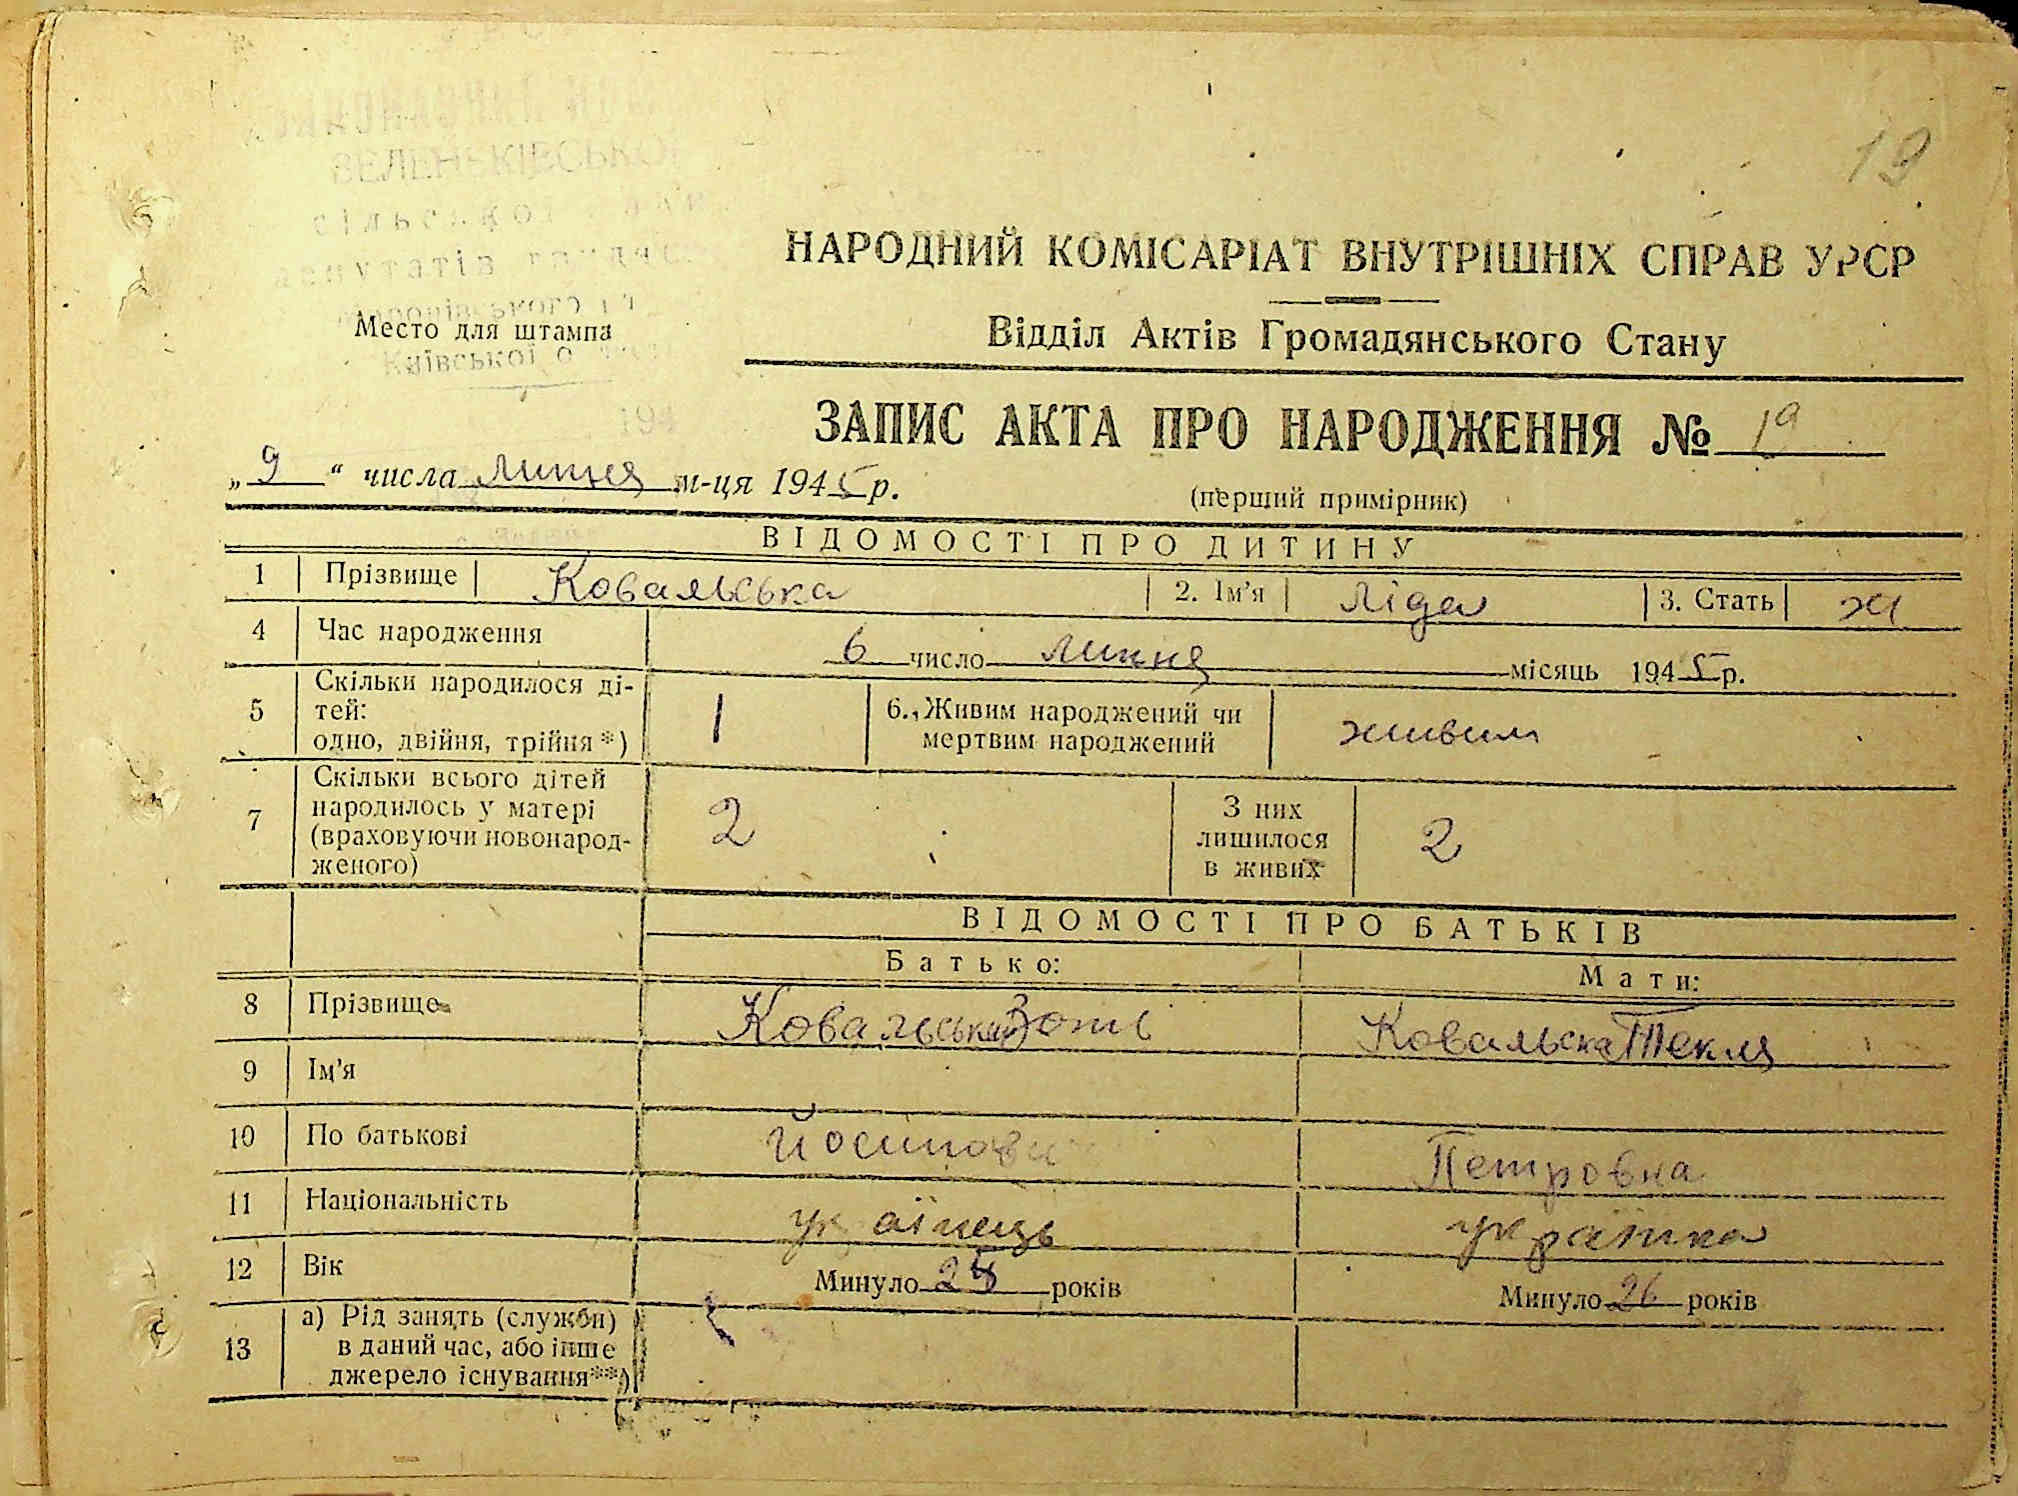 19
ЗЕЛЕНЬКІВСЬКОЇ
сільської
депутатів
Київської
194
Место для штампа
НАРОДНИЙ КОМІСАРІАТ ВНУТРІШНІХ СПРАВ УРСР
Відділ Актів Громадянського Стану
ЗАПИС АКТА ПРО НАРОДЖЕННЯ № 19
„9“ числа липня м-ця 1945 р.
(перший примірник)
ВІДОМОСТІ ПРО ДИТИНУ
1 Прізвище Ковальська 2. Ім'я Ліда 3. Стать ж
4 Час народження 6 число липня місяць 1945 р.
5 Скільки народилося ді-
тей:
одно, двійня, трійня*) 1 6. Живим народжений чи
мертвим народжений живим
7 Скільки всього дітей
народилось у матері
(враховуючи новонарод-
женого) 2 З них
лишилося
в живих 2
ВІДОМОСТІ ПРО БАТЬКІВ
Батько: Мати:
8 Прізвище Ковальський Зотів Ковальска Текля
9 Ім'я
10 По батькові Йосипови Петровна
11 Національність українець українка
12 Вік Минуло років Минуло 26 років
13 а) Рід занять (служби)
в даний час, або інше
джерело існування**)